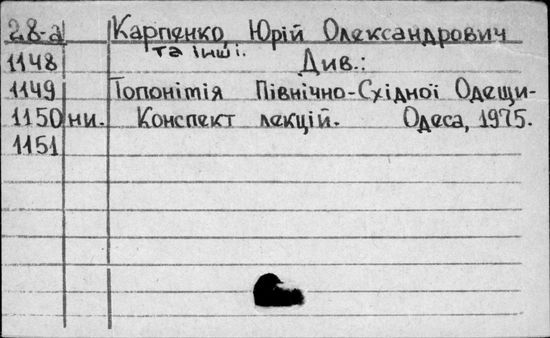 28-а Карпенко Юрій Олександрович
та інші.
1148 Див.:
1149 Топонімія Північно-Східної Одещи-
1150 ни. Конспект лекцій. Одеса, 1975.
1151